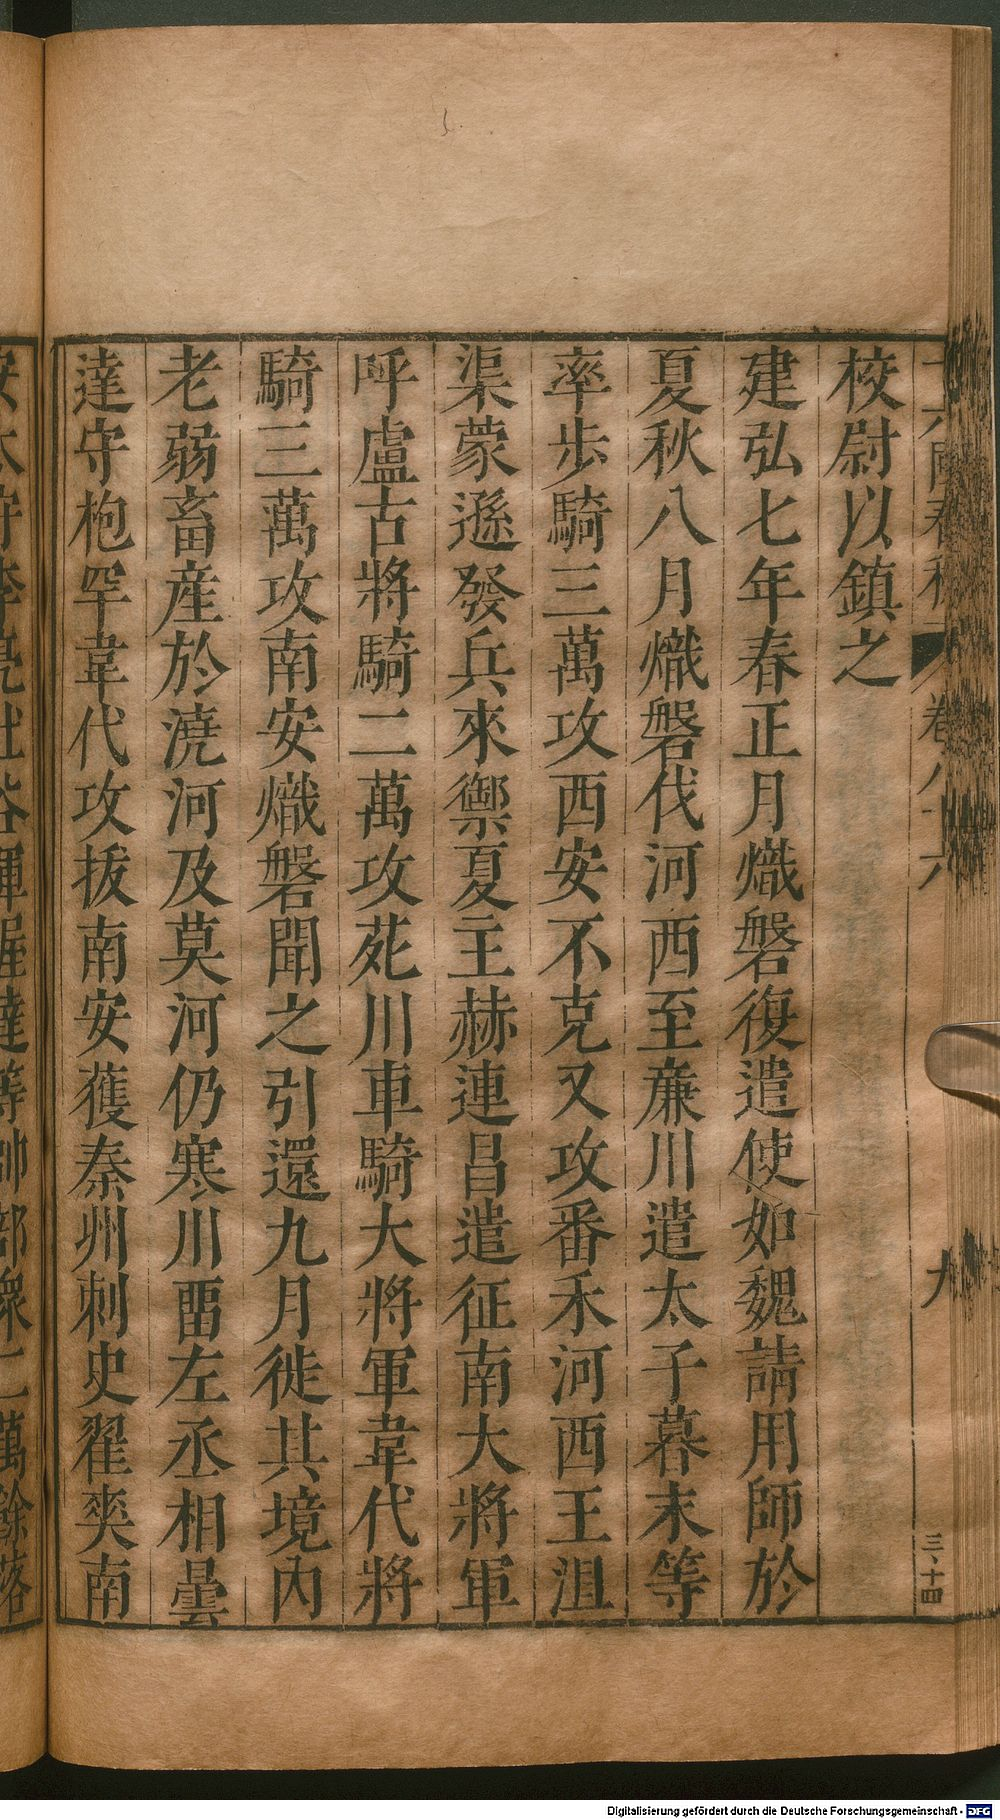 校尉以鎮之
建弘七年春正月熾磐復遣使如魏請用師於
夏秋八月熾磐伐河西至亷川遣太子暮末等
率步騎三萬攻西安不克又攻番禾河西王沮
渠蒙遜發兵來禦夏主赫連昌遣征南大將軍
呼盧古將騎二萬攻苑川車騎大將軍韋代將
騎三萬攻南安熾磐聞之引還九月徙其境內
老弱畜産於澆河及莫河仍寒川畱左丞相曇
達守枹罕韋代攻拔南安獲秦州刺史翟奭南
九
三、十四
Digitalisierung gefördert durch die Deutsche Forschungsgemeinschaft - DFG